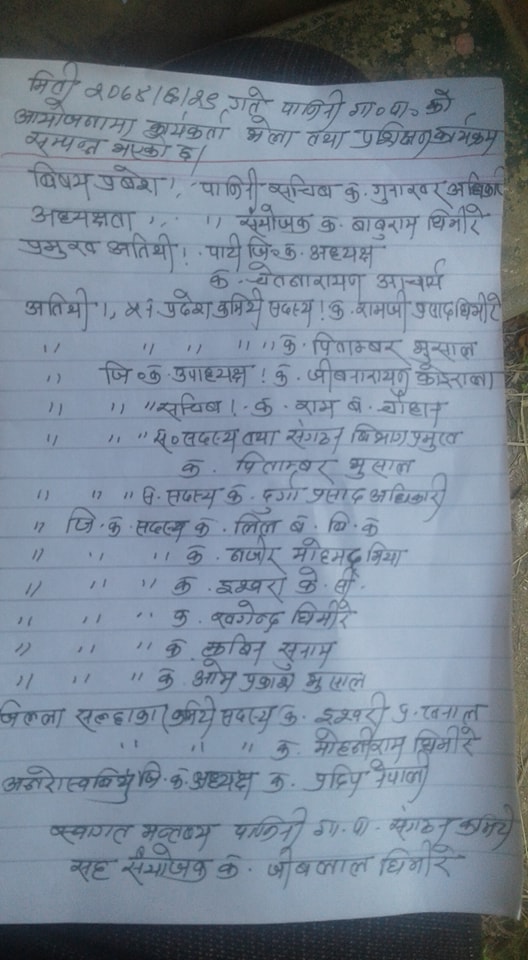 मिती २०७४/६/२९ गते पाणिनी गा॰पा॰ को
आयोजनामा कार्यकर्ता भेला तथा प्रशिक्षण कार्यक्रम
सम्पन्न भएको छ।
बिषय प्रबेश!,- पाणिनी सचिब क॰ गुनाखर अधिकारी
अध्यक्षता ,, " संयोजक क॰ बाबुराम घिमीरे
प्रमुख अतिथी!- पार्टी जि॰क॰ अध्यक्ष
क॰ चेतनारायण आचार्य
अतिथी!, ५ नं प्रदेश कमिटी सदस्य! क॰ रामजी प्रसाद घिमीरे
" " " " " " क॰ पिताम्बर भुसाल
" जि॰क॰ उपाध्यक्ष! क॰ जीबनारायण कोइराला
" " " सचिब!- क॰ राम ब॰ चौहान
" " " स॰सदस्य तथा संगठन बिभाग प्रमुख
क॰ पिताम्बर भुसाल
" " " स॰ सदस्य क॰ दुर्गा प्रसाद अधिकारी
" जि॰क॰ सदस्य क॰ लिल ब॰ बि॰क॰
" " " " क॰ नजीर मोहमद मिया
" " " क॰ इश्वरा के॰ सी॰
" " " क॰ खगेन्द्र घिमीरे
" " " क॰ सुनाम
" " " क॰ ओम प्रकाश भुसाल
जिल्ला सल्हाका कमिटी सदस्य क॰ इश्वरी प्र॰ खनाल
" " " " क॰ मोहनीराम घिमीरे
अनेरास्वबियु जि॰क॰ अध्यक्ष क॰ प्रदिप नेपाली
स्वागत मन्तब्य पाणिनी गा॰पा॰ संगठन कमिटी
सह संयोजक क॰ जीबलाल घिमीरे